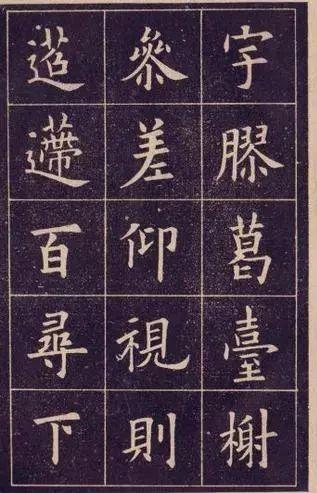 宇膠葛臺榭
叅差仰視則
迢遰百尋下